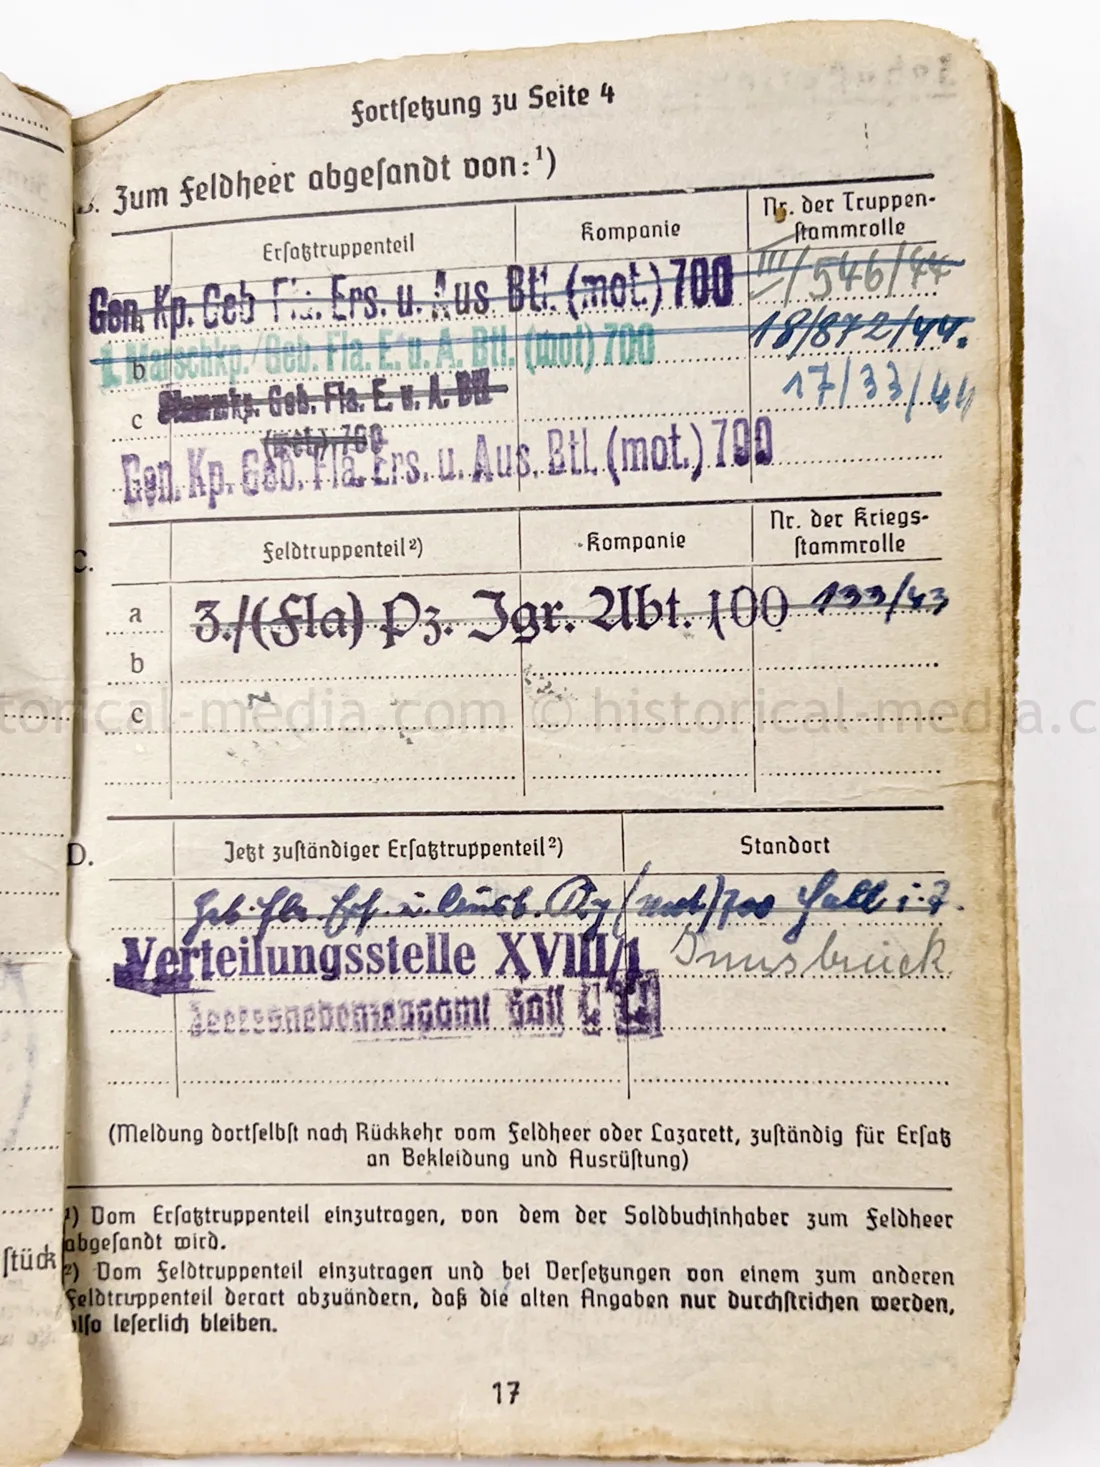 Fortsetzung zu Seite 4
B. Zum Feldheer abgesandt von:¹)
Ersatztruppenteil Kompanie Nr. der Truppen-
stammrolle
Gen. Kp. Geb. Fla. Ers. u. Aus Btl. (mot.) 700 III/546/44
1. Marschkp./Geb. Fla. E. u. A. Btl. (mot) 700 18/872/44.
b
c Stammkp. Geb. Fla. E. u. A. Btl 17/33/44
(mot) 700
Gen. Kp. Geb. Fla. Ers. u. Aus. Btl. (mot.) 700
C.
Feldtruppenteil²) Kompanie Nr. der Kriegs-
stammrolle
a 3./(Fla) Pz. Jgr. Abt. 100 133/43
b
c
D.
Jetzt zuständiger Ersatztruppenteil²) Standort
Geb. Fla. Ers. u. Ausb. (mot.) 700 Hall i. T.
Verteilungsstelle XVIII/1 Innsbruck
Heeresnebenzeugamt Hall
(Meldung dortselbst nach Rückkehr vom Feldheer oder Lazarett, zuständig für Ersatz
an Bekleidung und Ausrüstung)
¹) Vom Ersatztruppenteil einzutragen, von dem der Soldbuchinhaber zum Feldheer
abgesandt wird.
stück
²) Vom Feldtruppenteil einzutragen und bei Versetzungen von einem zum anderen
Feldtruppenteil derart abzuändern, daß die alten Angaben nur durchstrichen werden,
also leserlich bleiben.
17
torical-media.com © historical-media.c